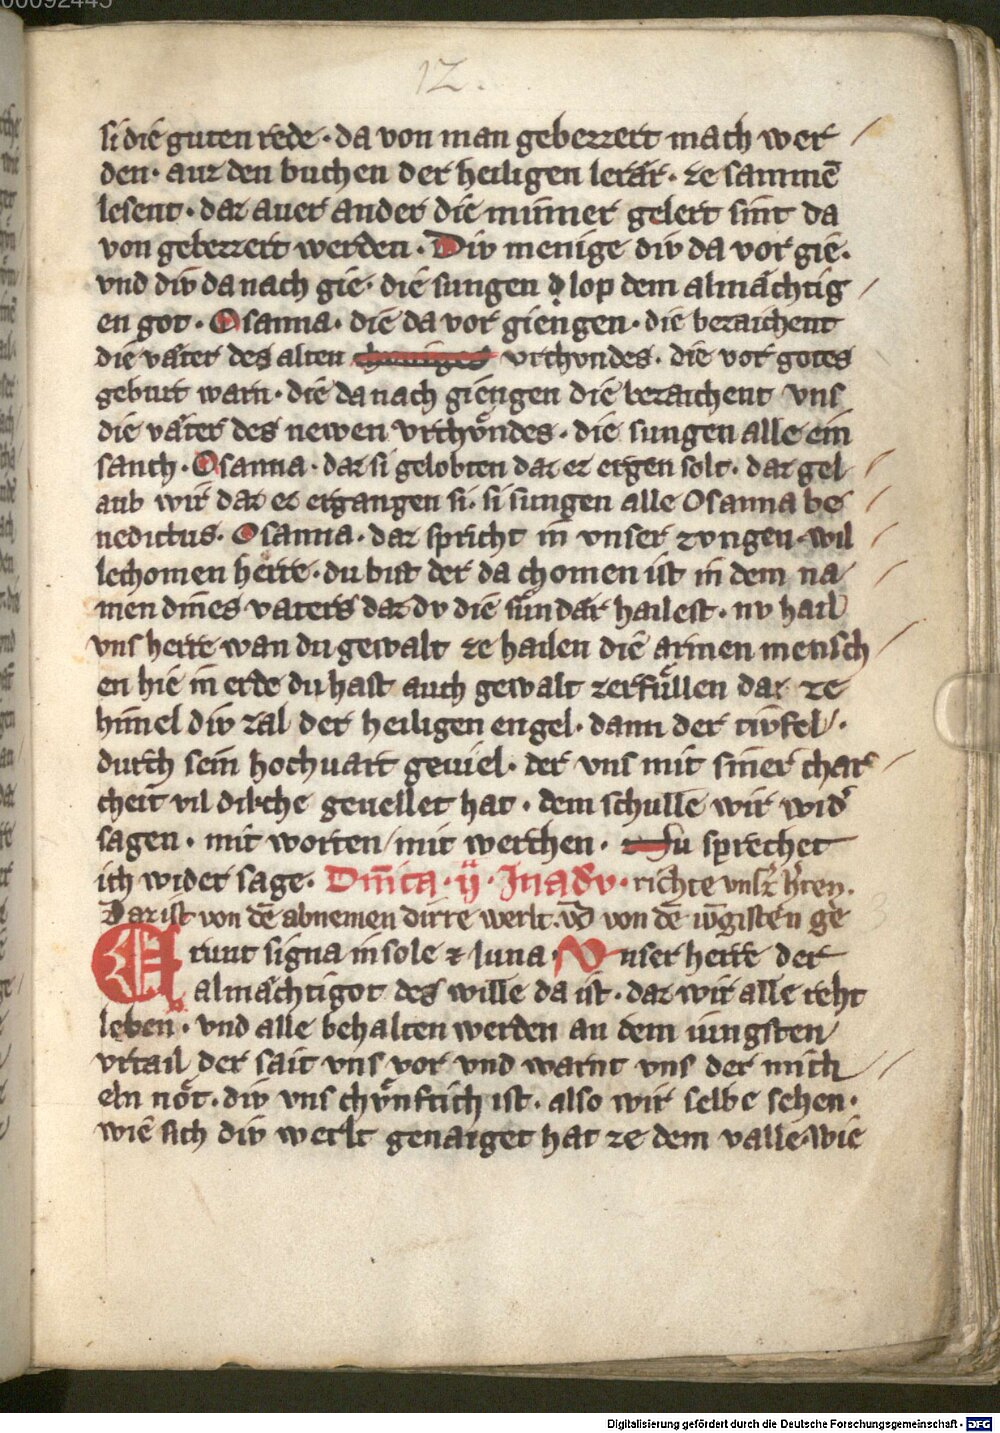 00092445
12.
si die guten rede · da von man gebezzert mach wer
den · auz den buchen der heiligen lerär · ze sammē
lesent · daz auer ander die minner gelert sint da
von gebezzert werden · Div menige div da vor gie ·
vnd div da nach gie · die sungen lop dem almächtig
en got · Osanna · die da vor giengen · die bezaichent
die väter des alten vrchvndes · die vor gotes
geburt warn · die da nach giengen die bezaichent vns
die väter des newen vrchvndes · die sungen alle ein
sanch · Osanna · daz si gelobten daz ez ergen solt · daz gel
aub wir daz ez ergangen si · si sungen alle Osanna be
nedictus · Osanna · daz spricht in vnser zvngen · wil
lechomen herre · du bist der da chomen ist in dem na
men dines vaters daz dv die sündär hailest · nv hail
vns herre wan du gewalt ze hailen die armen mensch
en hie in erde du hast auch gewalt zerfüllen daz ze
himel div zal der heiligen engel · dann der tivfel ·
durch sein hochuart geuiel · der vns mit siner char
cheit vil diche geuellet hat · dem schulle wir wid
sagen · mit worten / mit werchen · Nu sprechet
ich wider sage · Dnica · ij · In adv · richte vnsz hren ·
Daz ist von dē abnemen dirre werlt · vn von dē ge
Erunt signa in sole & luna Vnser herre der
almächtigot des wille da ist · daz wir alle reht
leben · vnd alle behalten werden an dem iungsten
vrtail der sait vns vor vnd warnt vns der mich
eln nöt · div vns chvnftich ist · also wir selbe sehen ·
wie sich div werlt genaiget hat ze dem valle · wie
Digitalisierung gefördert durch die Deutsche Forschungsgemeinschaft - DFG